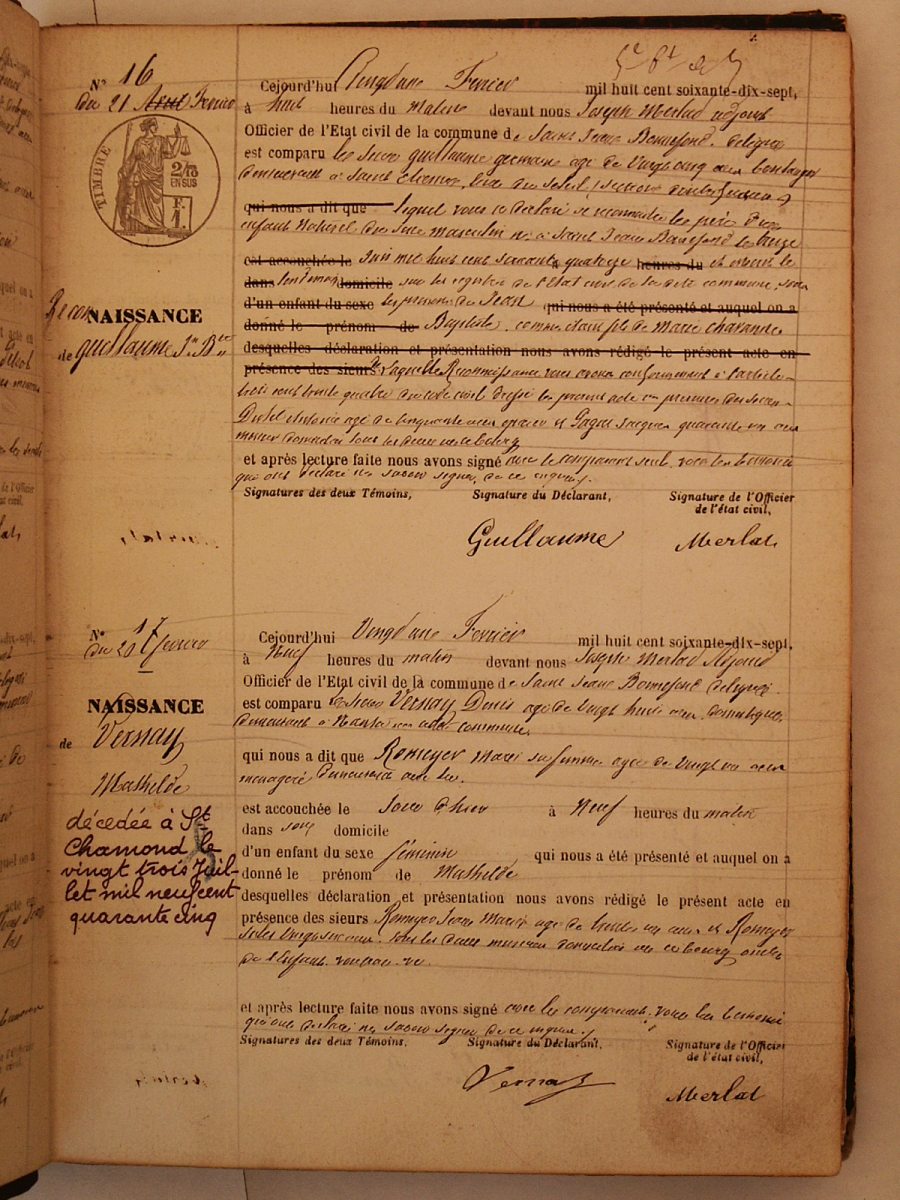 N° 16
du 21 Avril Fevrier
TIMBRE
2/10
EN SUS
F.
1.
Recon
NAISSANCE
de guillaume Jn Bte
Cejourd'hui Vingt une Fevrier mil huit cent soixante-dix-sept,
à huit heures du matin devant nous Joseph Merlat adjoint
Officier de l'Etat civil de la commune de Saint Jean Bonnefond, délégué
est comparu le sieur guillaume germain agé de vingt cinq ans boulanger
demeurant à Saint Etienne, rue du Soleil
qui nous a dit que lequel nous a déclaré se reconnaitre le père d'un
enfant Naturel du sexe masculin né à Saint Jean Bonnefond le treize
est accouchée le Juin mil huit cent soixante quatorze heures du et inscrit le
dans lendemain domicile sur les registres de l'Etat civil de la dite commune, sous
d'un enfant du sexe les prénoms de Jean qui nous a été présenté et auquel on a
donné le prénom de Baptiste, comme étant fils de Marie Chavanne
desquelles déclaration et présentation nous avons rédigé le présent acte en
présence des sieurs laquelle Reconnaissance nous avons conformément à l'article
trois cent trente quatre du code civil dressé le présent acte en présence des sieurs
Antoine agé de cinquante ans et Jacques quarante un ans
mineur domiciliés tous les deux en ce bourg
et après lecture faite nous avons signé avec le comparant seul, non les témoins
qui ont déclaré ne savoir signer de ce enquis.
Signatures des deux Témoins, Signature du Déclarant, Signature de l'Officier
de l'état civil,
Guillaume Merlat
N° 17
du 21 fevrier
NAISSANCE
de Vernay
Mathilde
décédée à St
Chamond le
vingt trois Juil-
let mil neuf cent
quarante cinq
Cejourd'hui Vingt une Fevrier mil huit cent soixante-dix-sept,
à Neuf heures du matin devant nous Joseph Merlat Adjoint
Officier de l'Etat civil de la commune de Saint Jean Bonnefond délégué
est comparu le sieur Vernay Denis agé de vingt huit ans, domestique
demeurant à commune
qui nous a dit que Romeyer Marie sa femme agée de vingt un ans
menagère demeurant avec lui
est accouchée le Jour d'hier à Neuf heures du matin
dans son domicile
d'un enfant du sexe féminin qui nous a été présenté et auquel on a
donné le prénom de Mathilde
desquelles déclaration et présentation nous avons rédigé le présent acte en
présence des sieurs Romeyer Jean Marie agé de trente un ans et Romeyer
vingt six ans, tous les deux mineurs domiciliés en ce bourg oncles
de l'enfant
et après lecture faite nous avons signé avec le comparant, non les témoins
qui ont déclaré ne savoir signer de ce enquis
Signatures des deux Témoins. Signature du Déclarant, Signature de l'Officier
de l'état civil,
Vernay Merlat